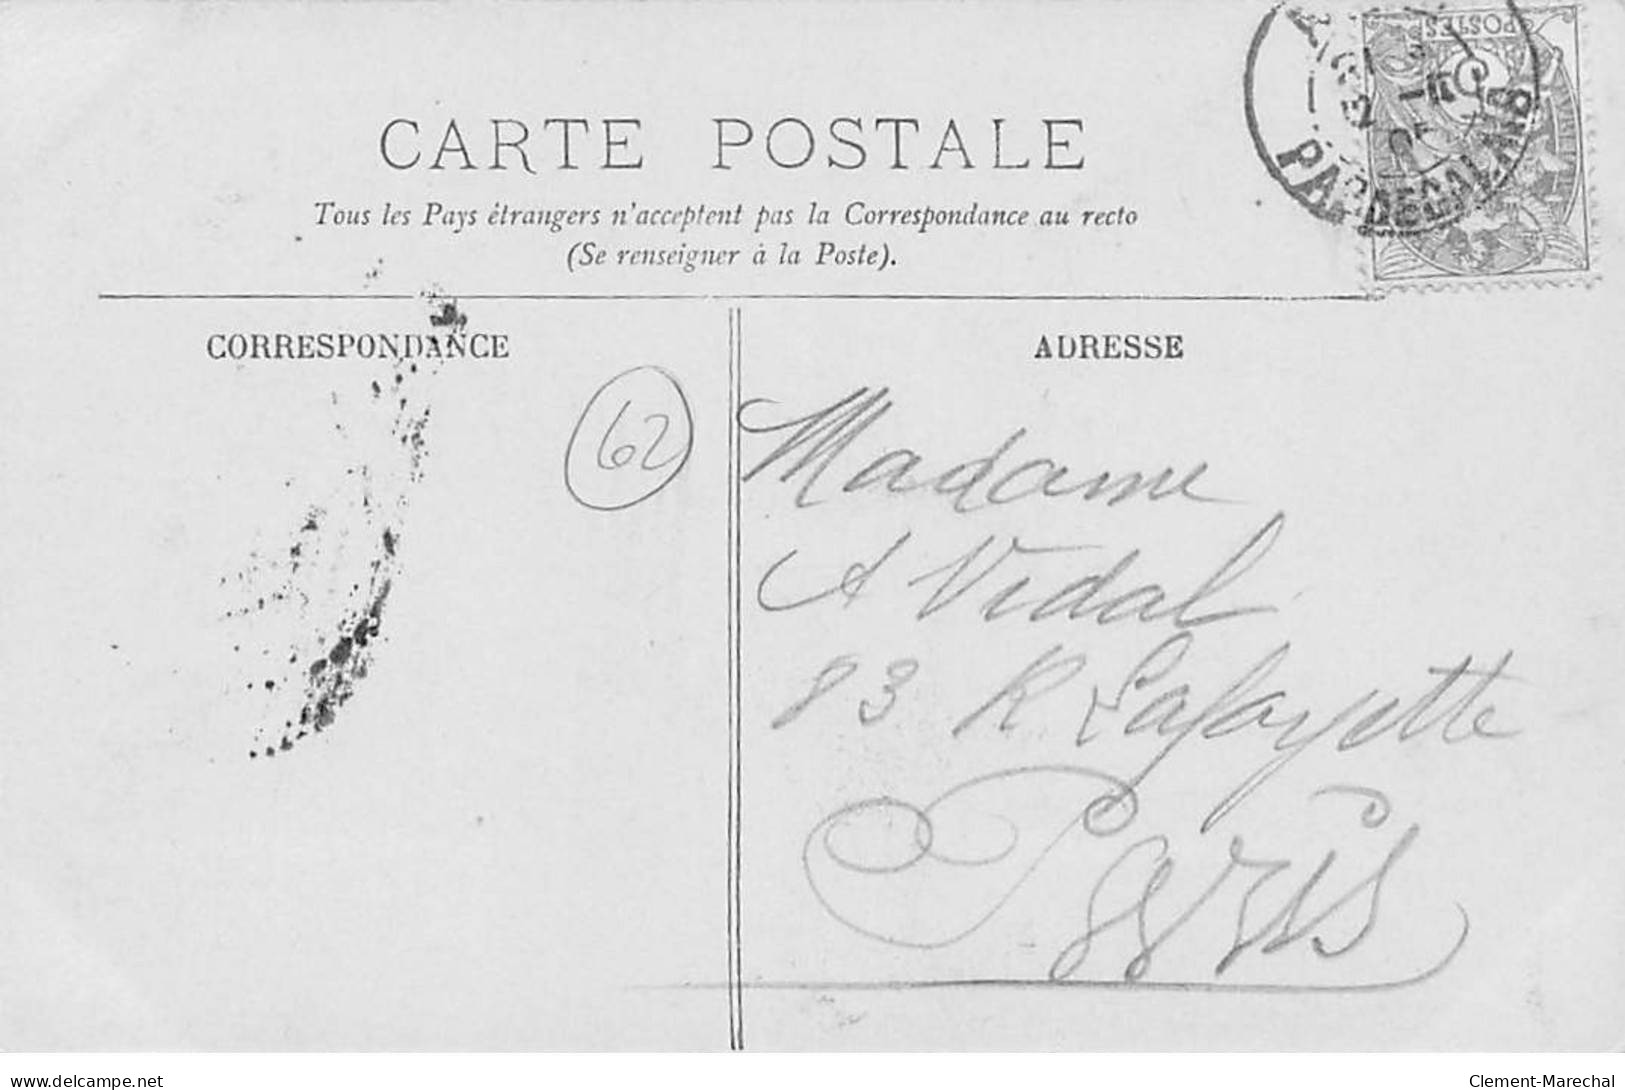 POSTES
PAS-DE-CALAIS
CARTE POSTALE
Tous les Pays étrangers n'acceptent pas la Correspondance au recto
(Se renseigner à la Poste).
CORRESPONDANCE
ADRESSE
62
Madame
A Vidal
83 R Lafayette
Paris
delcampe.net
Clement-Marechal